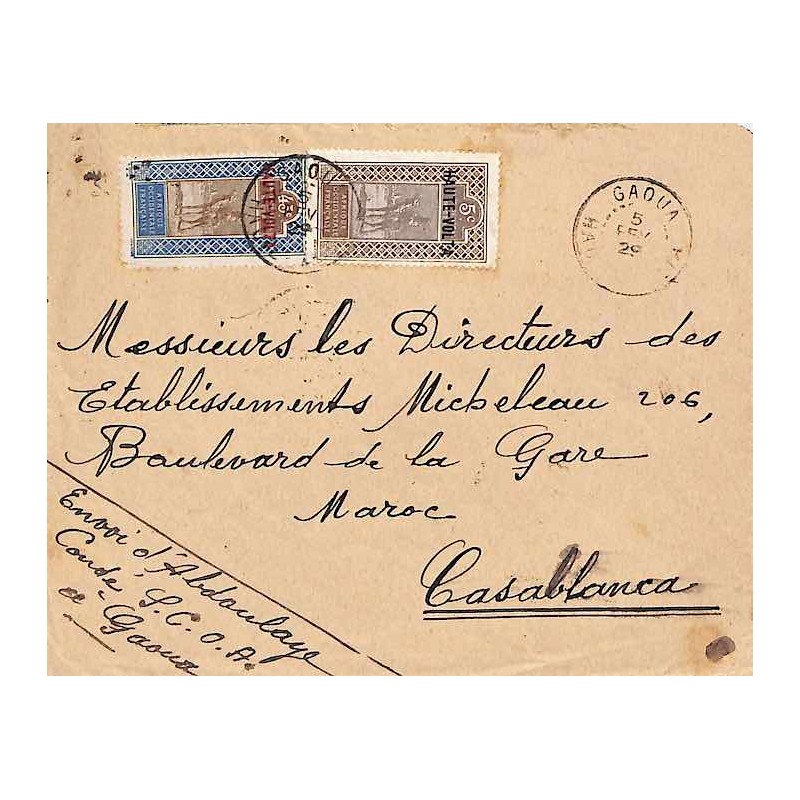 AFRIQUE
OCCIDENTALE
FRANÇAISE
45c
HAUTE-VOLTA
AFRIQUE
OCCIDENTALE
FRANÇAISE
5c
HAUTE-VOLTA
GAOUA
5
FEV
29
Messieurs les Directeurs des
Etablissements Micheleau 206,
Boulevard de la Gare
Maroc
Casablanca
Envoi d'Abdoulaye
Condé, S.C.O.A.
à Gaoua